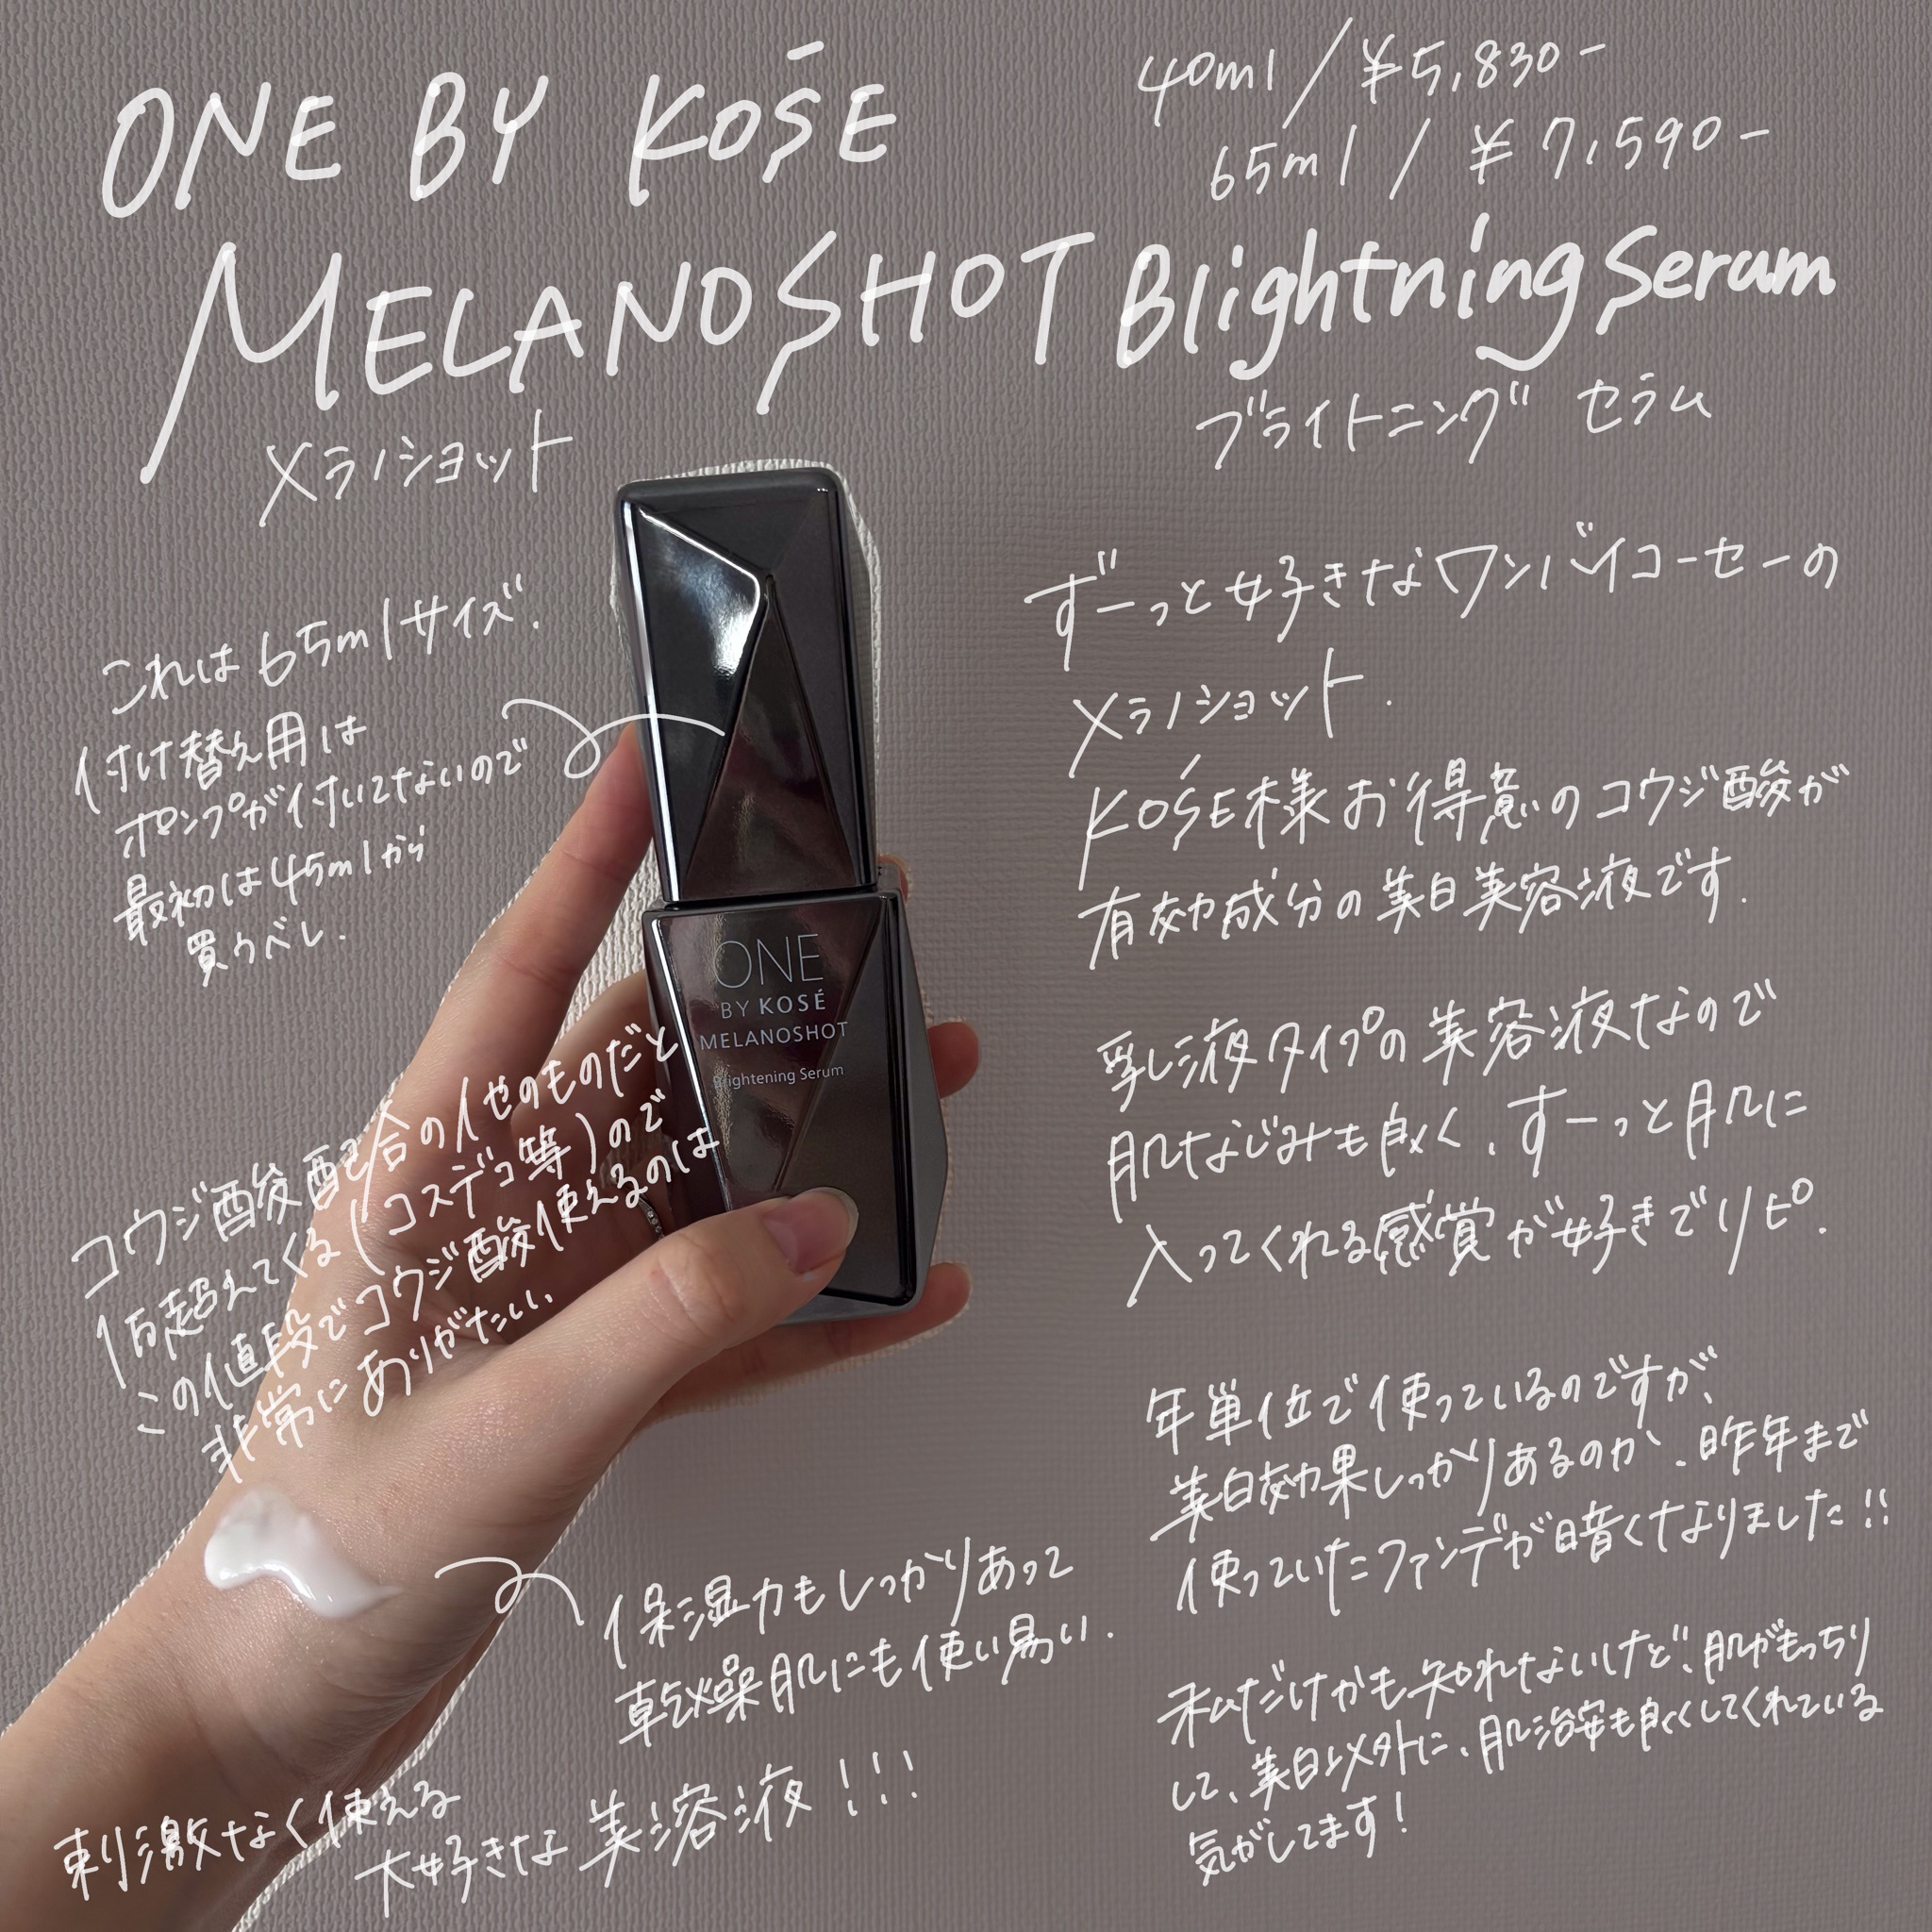 ONE BY KOSĒ
40ml / ¥5,830-
65ml / ¥7,590-
MELANOSHOT Blightning Serum
メラノショット
ブライトニング セラム
これは65mlサイズ.
付け替え用は
ポンプが付いてないので
最初は45mlから
買うべし.
ずーっと好きなワンバイコーセーの
メラノショット.
KOSÉ様お得意のコウジ酸が
有効成分の美白美容液です.
乳液タイプの美容液なので
肌なじみも良く、ずーっと肌に
入ってくれる感覚が好きでリピ.
ONE
BY KOSÉ
MELANOSHOT
Brightening Serum
コウジ酸配合の他のものだと
倍超えてくる(コスデコ等)ので
この値段でコウジ酸使えるのは
非常にありがたい、
年単位で使っているのですが、
美白効果しっかりあるのか、昨年まで
使っていたファンデが暗くなりました!!
保湿力もしっかりあって
乾燥肌にも使い易い.
私だけかも知れないけど、肌がもっちり
して、美白以外に、肌治安も良くしてくれている
気がしてます!
刺激なく使える
大好きな美容液!!!